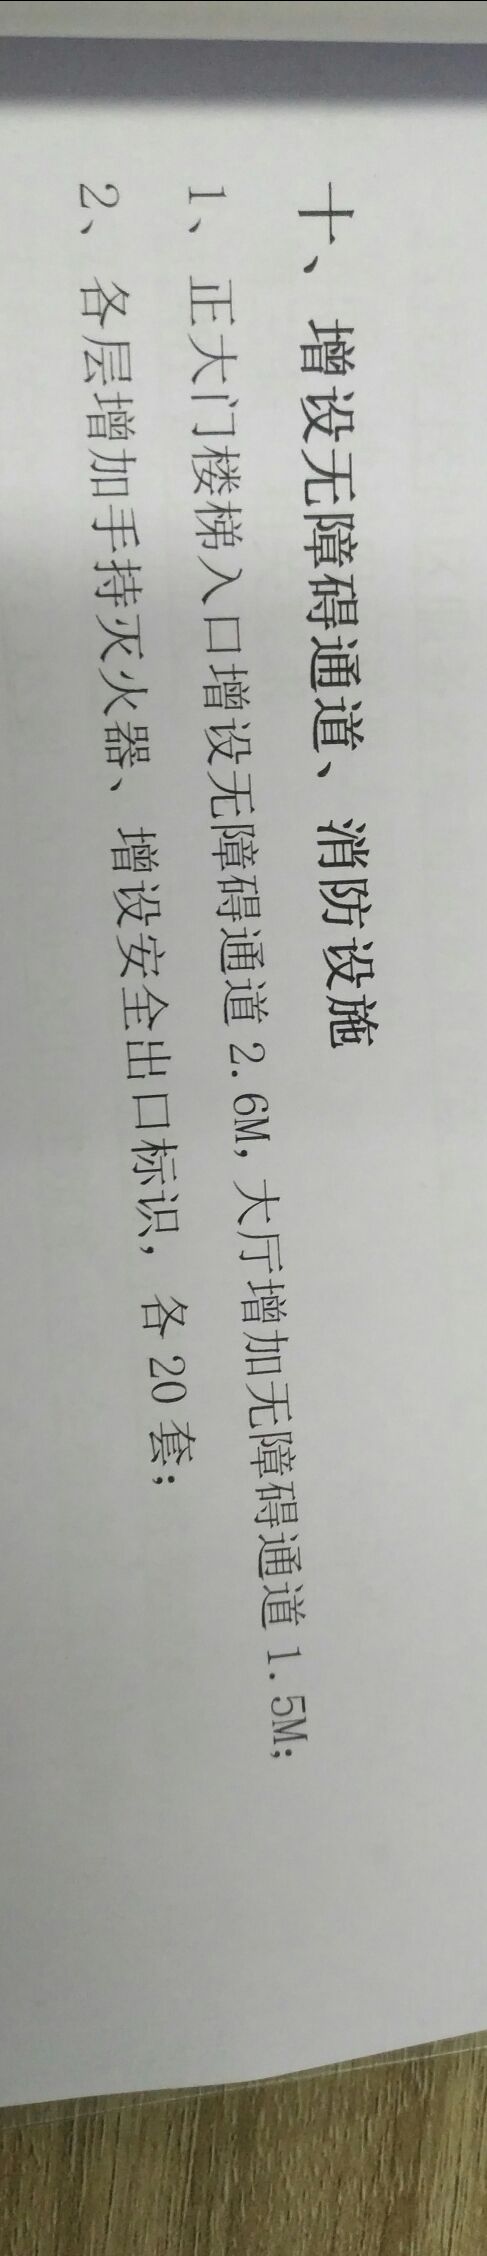 十、增设无障碍通道、消防设施
1、正大门楼梯入口增设无障碍通道 2.6M,大厅增加无障碍通道 1.5M;
2、各层增加手持灭火器、增设安全出口标识，各 20 套；